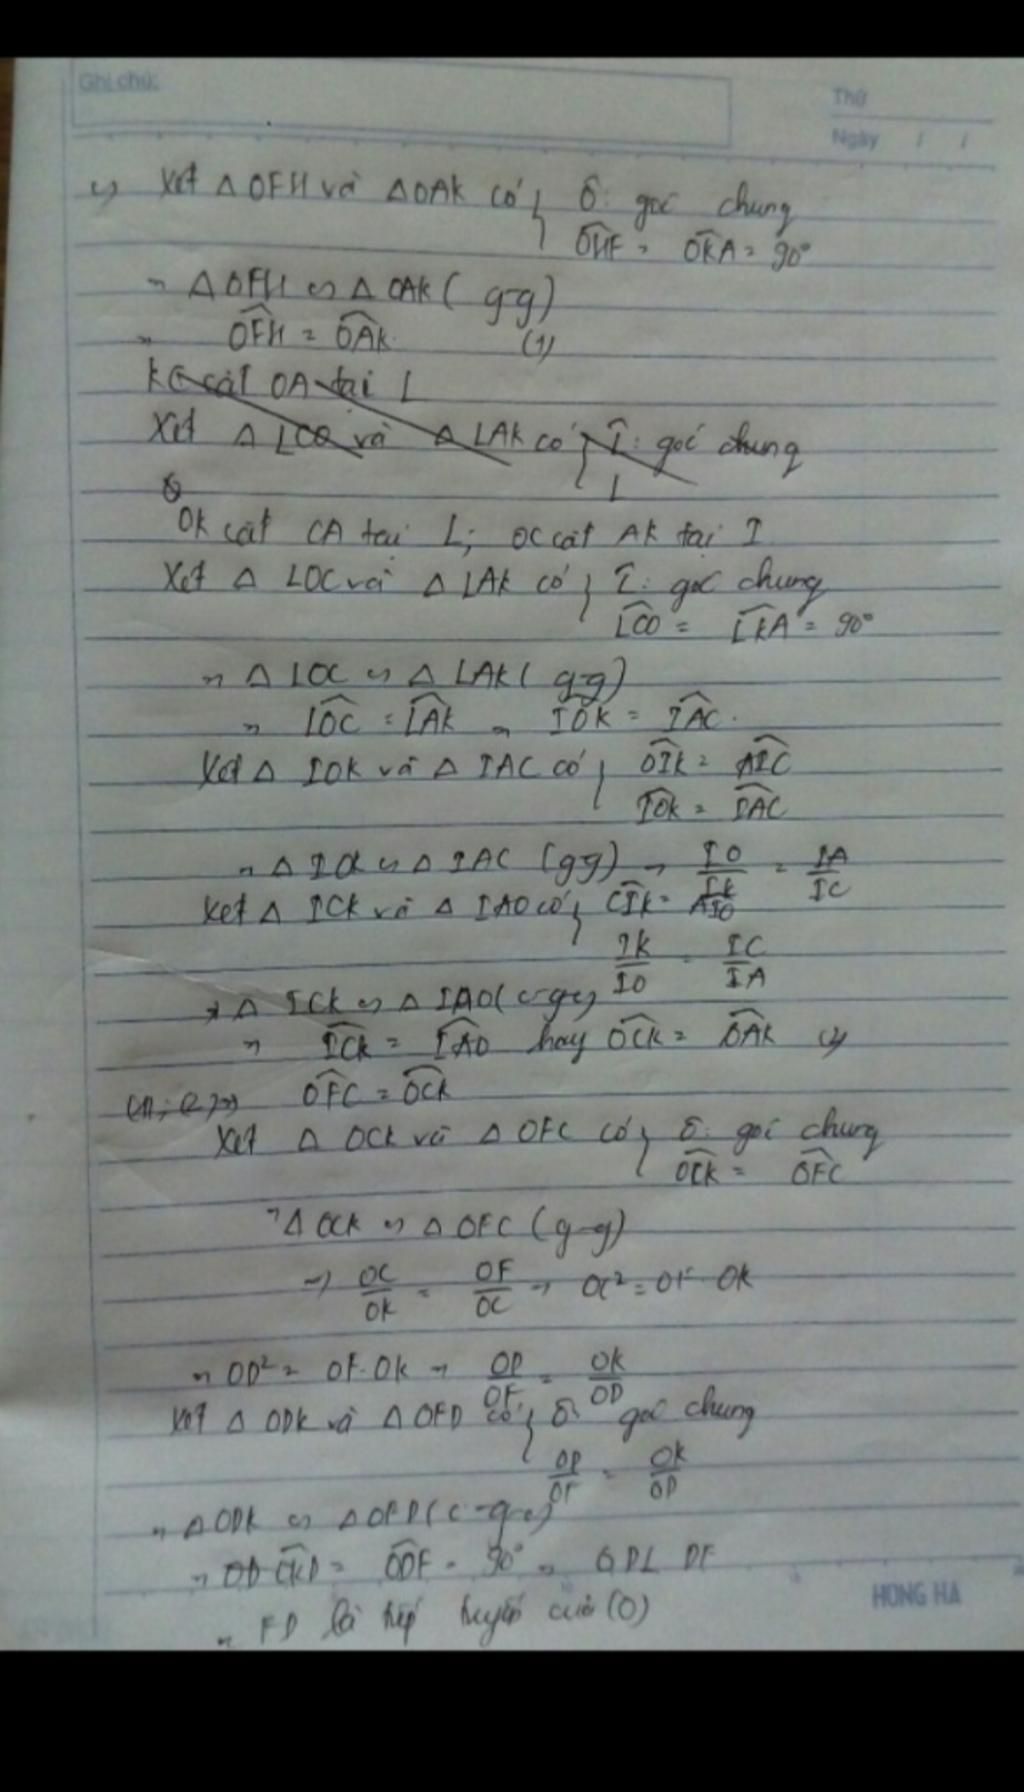 Ghi chú:
Thứ
Ngày / /
c) Xét Δ OFH và Δ OAK có { Ô: góc chung
OHF = OKA = 90°
⇒ Δ OFH ∽ Δ OAK ( g-g)
⇒ OFH = OAK. (1)
KC cắt OA tại L
Xét Δ LCO và Δ LAK có { L̂: góc chung
L
OK cắt CA tại L; OC cắt AK tại I
Xét Δ LOC và Δ LAK có { L̂: góc chung
LCO = LKA = 90°
⇒ Δ LOC ∽ Δ LAK ( g-g)
⇒ LOC = LAK ⇒ IOK = IAC.
Xét Δ IOK và Δ IAC có { OIK = AIC
IOK = IAC
⇒ Δ IOK ∽ Δ IAC (gg) → IO/IK = IA/IC
Xét Δ ICK và Δ IAO có { CIK = AIO
IK/IO = IC/IA
⇒ Δ ICK ∽ Δ IAO (c-g-c)
⇒ ICK = IAO hay OCK = OAK (2)
(1); (2) ⇒ OFC = OCK
Xét Δ OCK và Δ OFC có { Ô: góc chung
OCK = OFC
⇒ Δ OCK ∽ Δ OFC ( g-g)
→ OC/OK = OF/OC → OC² = OF . OK
⇒ OD² = OF. OK → OD/OF = OK/OD
Xét Δ ODK và Δ OFD có { Ô: góc chung
OD/OF = OK/OD
⇒ Δ ODK ∽ Δ OFD (c-g-c)
⇒ OKD = ODF = 90° ⇒ OD ⊥ DF
⇒ FD là tiếp tuyến của (O)
HONG HA